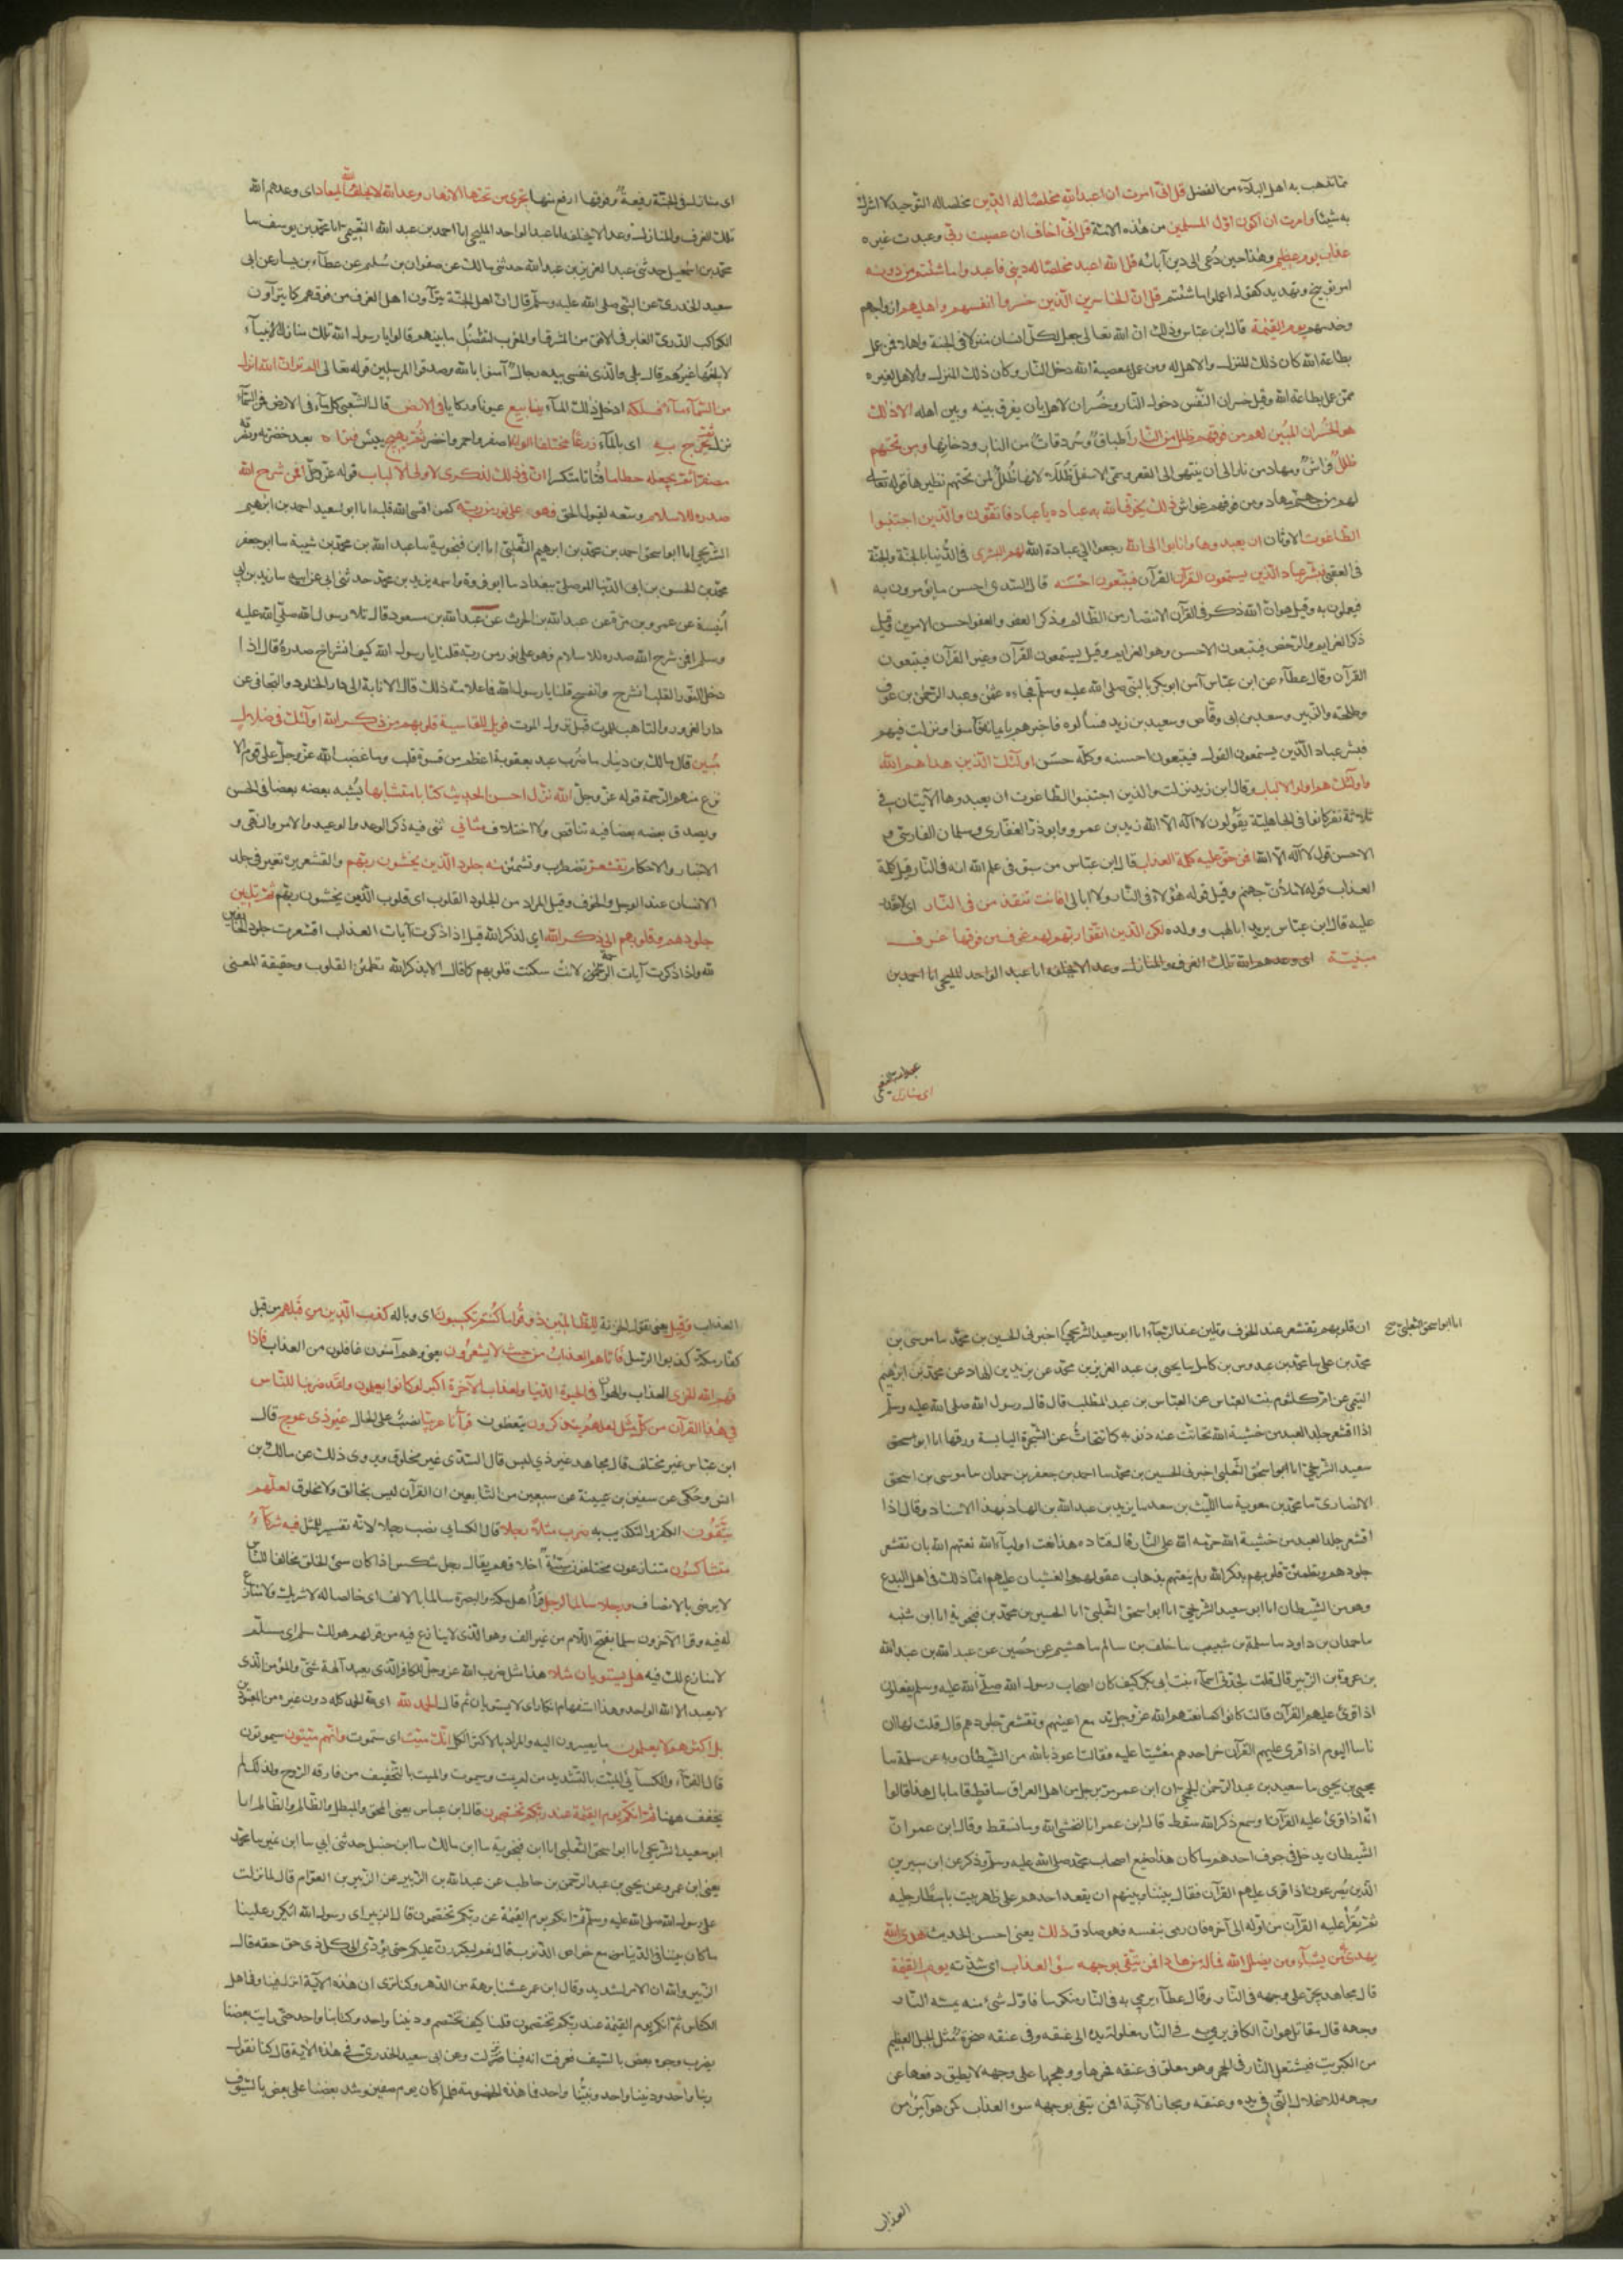 مما تذهب به اهل البلاء من الفضل قل انى امرت ان اعبد الله مخلصا له الدين مخلصا له التوحيد لا اشرك
به شيئا وامرت ان اكون اول المسلمين من هذه الامة قل انى اخاف ان عصيت ربى وعبدت غيره
عذاب يوم عظيم وهذا حين دعى الى دين آبائه قل الله اعبد مخلصا له دينى فاعبدوا ما شئتم من دونه
امر توبيخ وتهديد كقوله اعملوا ما شئتم قل ان الخاسرين الذين خسروا انفسهم واهليهم ازواجهم
وخدمهم يوم القيمة قال ابن عباس وذلك ان الله تعالى جعل لكل انسان منزلا فى الجنة واهلا فمن عمل
بطاعة الله كان ذلك المنزل والاهل له ومن عمل بمعصية الله دخل النار وكان ذلك المنزل والاهل لغيره
ممن عمل بطاعة الله وقيل خسران النفس دخول النار وخسران الاهل بان يفرق بينه وبين اهله الا ذلك
هو الخسران المبين لهم من فوقهم ظلل من النار اطباق وسردقات من النار ودخانها ومن تحتهم
ظلل فراش ومهاد من نار الى ان ينتهى الى القعر وسمى الاسفل ظللا لانها ظلل لمن تحتهم نظيرها قوله تعالى
لهم من جهنم مهاد ومن فوقهم غواش ذلك يخوف الله به عباده يا عباد فاتقون والذين اجتنبوا
الطاغوت الاوثان ان يعبدوها وانابوا الى الله رجعوا الى عبادة الله لهم البشرى فى الدنيا بالجنة والجنة
فى العقبى فبشر عباد الذين يستمعون القرآن القرآن فيتبعون احسنه قال السدى احسن ما يؤمرون به
فيعملون به وقيل هو ان الله ذكر فى القرآن الانتصار من الظالم وذكر العفو والعفو احسن الامرين وقيل
ذكر العزايم والرخص فيتبعون الاحسن وهو العزايم وقيل يستمعون القرآن وغير القرآن فيتبعون
القرآن وقال عطاء عن ابن عباس آمن ابو بكر بالنبى صلى الله عليه وسلم فجاءه عثمن وعبد الرحمن بن عوف
وطلحة والزبير وسعد بن ابى وقاص وسعيد بن زيد فسالوه فاخبرهم بايمانه فآمنوا ونزلت فيهم
فبشر عباد الذين يستمعون القول فيتبعون احسنه وكله حسن اولئك الذين هداهم الله
واولئك هم اولوا الالباب وقال ابن زيد نزلت والذين اجتنبوا الطاغوت ان يعبدوها الآيتان فى
ثلاثة نفر كانوا فى الجاهلية يقولون لا اله الا الله زيد بن عمرو وابو ذر الغفارى وسلمان الفارسى و
الاحسن قول لا اله الا الله افمن حق عليه كلمة العذاب قال ابن عباس من سبق فى علم الله انه فى النار وقيل كلمة
العذاب قوله لاملأن جهنم وقيل قوله هؤلاء فى النار ولا ابالى افانت تنقذ من فى النار اى لا تقدر
عليه قال ابن عباس يريد ابا لهب وولده لكن الذين اتقوا ربهم لهم غرف من فوقها غرف
مبنية اى وعدهم الله تلك الغرف والمنازل وعدا لا يخلفه انا عبد الواحد المليحى انا احمد بن
عبد الله النعيمى
اى منازل
اى منازل فى الجنة رفيعة وفوقها ارفع منها تجرى من تحتها الانهار وعد الله لا يخلف الله الميعاد اى وعدهم الله
تلك الغرف والمنازل وعدا لا يخلفه انا عبد الواحد المليحى انا احمد بن عبد الله النعيمى انا محمد بن يوسف سا
محمد بن اسمعيل حدثنى عبد العزيز بن عبد الله حدثنى مالك عن صفوان بن سليم عن عطاء بن يسار عن ابى
سعيد الخدرى عن النبى صلى الله عليه وسلم قال ان اهل الجنة يتراؤن اهل الغرف من فوقهم كما يتراؤن
الكوكب الدرى الغابر فى الافق من المشرق او المغرب لتفضل ما بينهم قالوا يا رسول الله تلك منازل الانبياء
لا يبلغها غيرهم قال بلى والذى نفسى بيده رجال آمنوا بالله وصدقوا المرسلين قوله تعالى الم تر ان الله انزل
من السماء ماء فسلكه ادخل ذلك الماء ينابيع عيونا وركايا فى الارض قال الشعبى كل ماء فى الارض فمن السماء
نزل ثم يخرج به اى بالماء زرعا مختلفا الوانه اصفر واحمر واخضر ثم يهيج ييبس فتراه بعد خضرته ونضرته
مصفرا ثم يجعله حطاما فتاتا متكسرا ان فى ذلك لذكرى لاولى الالباب قوله عز وجل افمن شرح الله
صدره للاسلام وسعه لقبول الحق فهو على نور من ربه كمن اقسى الله قلبه انا ابو سعيد احمد بن ابرهيم
الشريحى انا ابو اسحق احمد بن محمد بن ابرهيم الثعلبى انا ابن فنجوية سا عبد الله بن محمد بن شيبة سا ابو جعفر
محمد بن الحسن بن ابى الدنيا الموصلى ببغداد سا ابو فروة واسمه يزيد بن محمد حدثنى ابى عن ابيه سا زيد بن ابى
انيسة عن عمرو بن مرة عن عبد الله بن الحرث عن عبد الله بن مسعود قال تلا رسول الله صلى الله عليه
وسلم افمن شرح الله صدره للاسلام فهو على نور من ربه قلنا يا رسول الله كيف انشراح صدره قال اذا
دخل النور القلب انشرح وانفسح قلنا يا رسول الله فما علامة ذلك قال الانابة الى دار الخلود والتجافى عن
دار الغرور والتاهب للموت قبل نزول الموت فويل للقاسية قلوبهم من ذكر الله اولئك فى ضلال
مبين قال مالك بن دينار ما ضرب عبد بعقوبة اعظم من قسوة قلب وما غضب الله عز وجل على قوم الا
نزع منهم الرحمة قوله عز وجل الله نزل احسن الحديث كتابا متشابها يشبه بعضه بعضا فى الحسن
ويصدق بعضه بعضا فيه تناقض ولا اختلاف مثانى ثنى فيه ذكر الوعد والوعيد والامر والنهى و
الاخبار والاحكام تقشعر تضطرب وتشمئز منه جلود الذين يخشون ربهم والقشعريرة تغير فى جلد
الانسان عند الوجل والخوف وقيل المراد من الجلود القلوب اى قلوب الذين يخشون ربهم ثم تلين
جلودهم وقلوبهم الى ذكر الله اى لذكر الله قيل اذا ذكرت آيات العذاب اقشعرت جلود الخائفين
لله واذا ذكرت آيات الرحمة لانت سكنت قلوبهم كما قال الا بذكر الله تطمئن القلوب وحقيقة المعنى
انا ابو اسحق الثعلبى صح
ان قلوبهم تقشعر عند الخوف وتلين عند الرجاء انا ابو سعيد الشريحى اخبرنى الحسين بن محمد سا موسى بن
محمد بن على سا محمد بن عبدوس بن كامل سا يحيى بن عبد العزيز بن محمد عن يزيد بن الهاد عن محمد بن ابرهيم
التيمى عن ام كلثوم بنت العباس عن العباس بن عبد المطلب قال قال رسول الله صلى الله عليه وسلم
اذا اقشعر جلد العبد من خشية الله تحاتت عنه ذنوبه كما تتحات عن الشجرة اليابسة ورقها انا ابو اسحق
سعيد الشريحى انا ابو اسحق الثعلبى اخبرنى الحسين بن محمد سا احمد بن جعفر بن حمدان سا موسى بن اسحق
الانصارى سا محمد بن معوية سا الليث بن سعد سا يزيد بن عبد الله بن الهاد بهذا الاسناد وقال اذا
اقشعر جلد العبد من خشية الله حرمه الله على النار قال قتاده هذا نعت اولياء الله نعتهم الله بان تقشعر
جلودهم وتطمئن قلوبهم بذكر الله ولم ينعتهم بذهاب عقولهم والغشيان عليهم انما ذلك فى اهل البدع
وهو من الشيطان انا ابو سعيد الشريحى انا ابو اسحق الثعلبى انا الحسين بن محمد بن فنجوية انا ابن شنبه
سا حمدان بن داود سا سلمة بن شبيب سا خلف بن سالم سا هشيم عن حصين عن عبد الله بن عبد الله
بن عروة بن الزبير قال قلت لجدتى اسماء بنت ابى بكر كيف كان اصحاب رسول الله صلى الله عليه وسلم يفعلون
اذا قرئ عليهم القرآن قالت كانوا كما نعتهم الله عز وجل تدمع اعينهم وتقشعر جلودهم قال قلت لها ان
ناسا اليوم اذا قرى عليهم القرآن خر احدهم مغشيا عليه فقالت اعوذ بالله من الشيطان وبه عن سلمة سا
يحيى بن يحيى سا سعيد بن عبد الرحمن الجمحى ان ابن عمر مر برجل من اهل العراق ساقط فقال ما بال هذا قالوا
انه اذا قرئ عليه القرآن او سمع ذكر الله سقط قال ابن عمر انا لنخشى الله وما نسقط وقال ابن عمر ان
الشيطان يدخل فى جوف احدهم ما كان هذا صنيع اصحاب محمد صلى الله عليه وسلم وذكر عن ابن سيرين
الذين يصرعون اذا قرى عليهم القرآن فقال بيننا وبينهم ان يقعد احدهم على ظهر بيت باسطا رجليه
ثم يقرأ عليه القرآن من اوله الى آخره فان رمى بنفسه فهو صادق ذلك يعنى احسن الحديث هدى الله
يهدى به من يشاء ومن يضلل الله فما له من هاد افمن يتقى بوجهه سوء العذاب اى شدته يوم القيمة
قال مجاهد يجر على وجهه فى النار وقال عطاء يرمى به فى النار منكوسا فاول شئ منه يمسه النار
وجهه قال مقاتل هو ان الكافر يرمى به فى النار مغلولة يداه الى عنقه وفى عنقه صخرة مثل الجبل العظيم
من الكبريت فيشتعل النار فى الحجر وهو معلق فى عنقه فحرها ووهجها على وجهه لا يطيق دفعها عن
وجهه للاغلال التى فى يده وعنقه ومجاز الآية افمن يتقى بوجهه سوء العذاب كمن هو آمن من
العذاب
العذاب وقيل يعنى تقول الخزنة للظالمين ذوقوا ما كنتم تكسبون اى وباله كذب الذين من قبلهم من قبل
كفار مكة كذبوا الرسل فاتاهم العذاب من حيث لا يشعرون يعنى وهم آمنون غافلون من العذاب فاذا
قهم الله الخزى العذاب والهوان فى الحيوة الدنيا ولعذاب الآخرة اكبر لو كانوا يعلمون ولقد ضربنا للناس
فى هذا القرآن من كل مثل لعلهم يتذكرون يتعظون قرآنا عربيا نصب على الحال غير ذى عوج قال
ابن عباس غير مختلف قال مجاهد غير ذى لبس قال السدى غير مخلوق ويروى ذلك عن مالك بن
انس وحكى عن سفين بن عيينة عن سبعين من التابعين ان القرآن ليس بخالق ولا مخلوق لعلهم
يتقون الكفر والتكذيب به ضرب مثلا رجلا قال الكسائى نصب رجلا لانه تفسير للمثل فيه شركاء
متشاكسون متنازعون مختلفون سيئة اخلاقهم يقال رجل شكس اذا كان سيئ الخلق مخالفا للناس
لا يرضى بالانصاف ورجلا سالما لرجل قرأ اهل مكة والبصرة سالما بالالف اى خالصا له لا شريك ولا منازع
له فيه وقرا الآخرون سلما بفتح اللام من غير الف وهو الذى لا ينازع فيه من قولهم هو لك سلم اى مسلم
لا منازع لك فيه هل يستويان مثلا هذا مثل ضرب الله عز وجل للكافر الذى يعبد آلهة شتى والمؤمن الذى
لا يعبد الا الله الواحد وهذا استفهام انكار اى لا يستويان ثم قال الحمد لله اى لله الحمد كله دون غيره من المعبودين
بل اكثرهم لا يعلمون ما يصيرون اليه والمراد بالاكثر الكل انك ميت اى ستموت وانهم ميتون سيموتون
قال الفراء والكسائى الميت بالتشديد من لم يمت وسيموت والميت بالتخفيف من فارقه الروح ولذلك لم
يخفف ههنا ثم انكم يوم القيمة عند ربكم تختصمون قال ابن عباس يعنى المحق والمبطل والظالم والمظلوم انا
ابو سعيد الشريحى انا ابو اسحق الثعلبى انا ابن فنجوية سا ابن مالك سا ابن حنبل حدثنى ابى سا ابن نمير سا محمد
يعنى ابن عمرو عن يحيى بن عبد الرحمن بن حاطب عن عبد الله بن الزبير عن الزبير بن العوام قال لما نزلت
على رسول الله صلى الله عليه وسلم ثم انكم يوم القيمة عند ربكم تختصمون قال الزبير اى رسول الله ايكرر علينا
ما كان بيننا فى الدنيا مع خواص الذنوب قال نعم ليكررن عليكم حتى يؤدى الى كل ذى حق حقه قال
الزبير والله ان الامر لشديد وقال ابن عمر عشنا برهة من الدهر وكنا نرى ان هذه الآية انزلت فينا وفى اهل
الكتاب ثم انكم يوم القيمة عند ربكم تختصمون قلنا كيف نختصم وديننا واحد وكتابنا واحد حتى رايت بعضنا
يضرب وجوه بعض بالسيف فعرفت انه فينا نزلت وعن ابى سعيد الخدرى فى هذه الآية قال كنا نقول
ربنا واحد وديننا واحد ونبينا واحد فما هذه الخصومة فلما كان يوم صفين وشد بعضنا على بعض بالسيوف